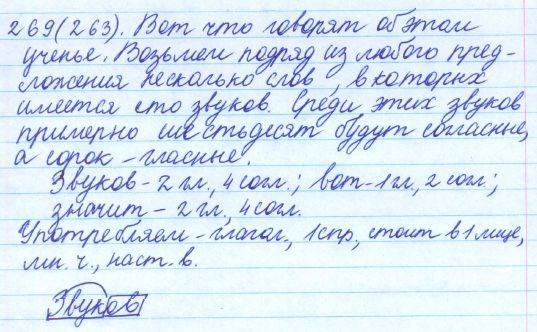 269(263). Вот что говорят об этом
ученые. Возьмем подряд из любого пред-
ложения несколько слов, в которых
имеется сто звуков. Среди этих звуков
примерно шестьдесят будут согласные,
а сорок - гласные.
Звуков - 2 гл., 4 согл.; вот - 1 гл, 2 согл.;
значит - 2 гл., 4 согл.
Употребляем - глагол, 1 спр, стоит в 1 лице,
мн. ч., наст. в.
Звуков